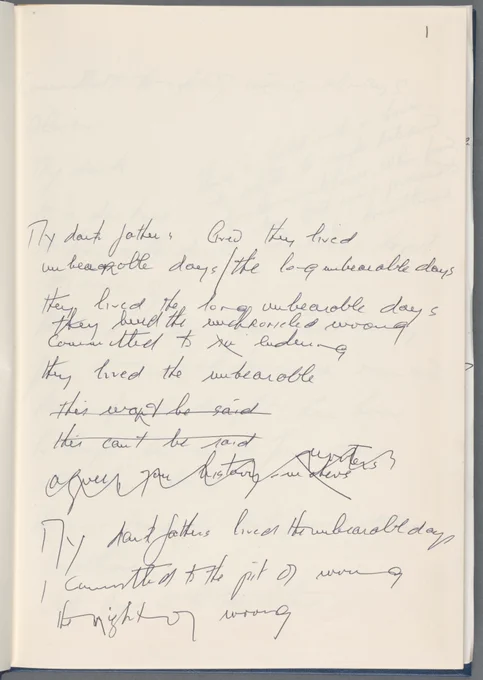 1
My dark fathers lived they lived
unbearable days/the long unbearable days
they lived the long unbearable days
they lived the unchronicled wrong
committed to enduring
they lived the unbearable
this won't be said
this can't be said
you history
My dark fathers lived the unbearable days
committed to the pit of wrong
the night of wrong